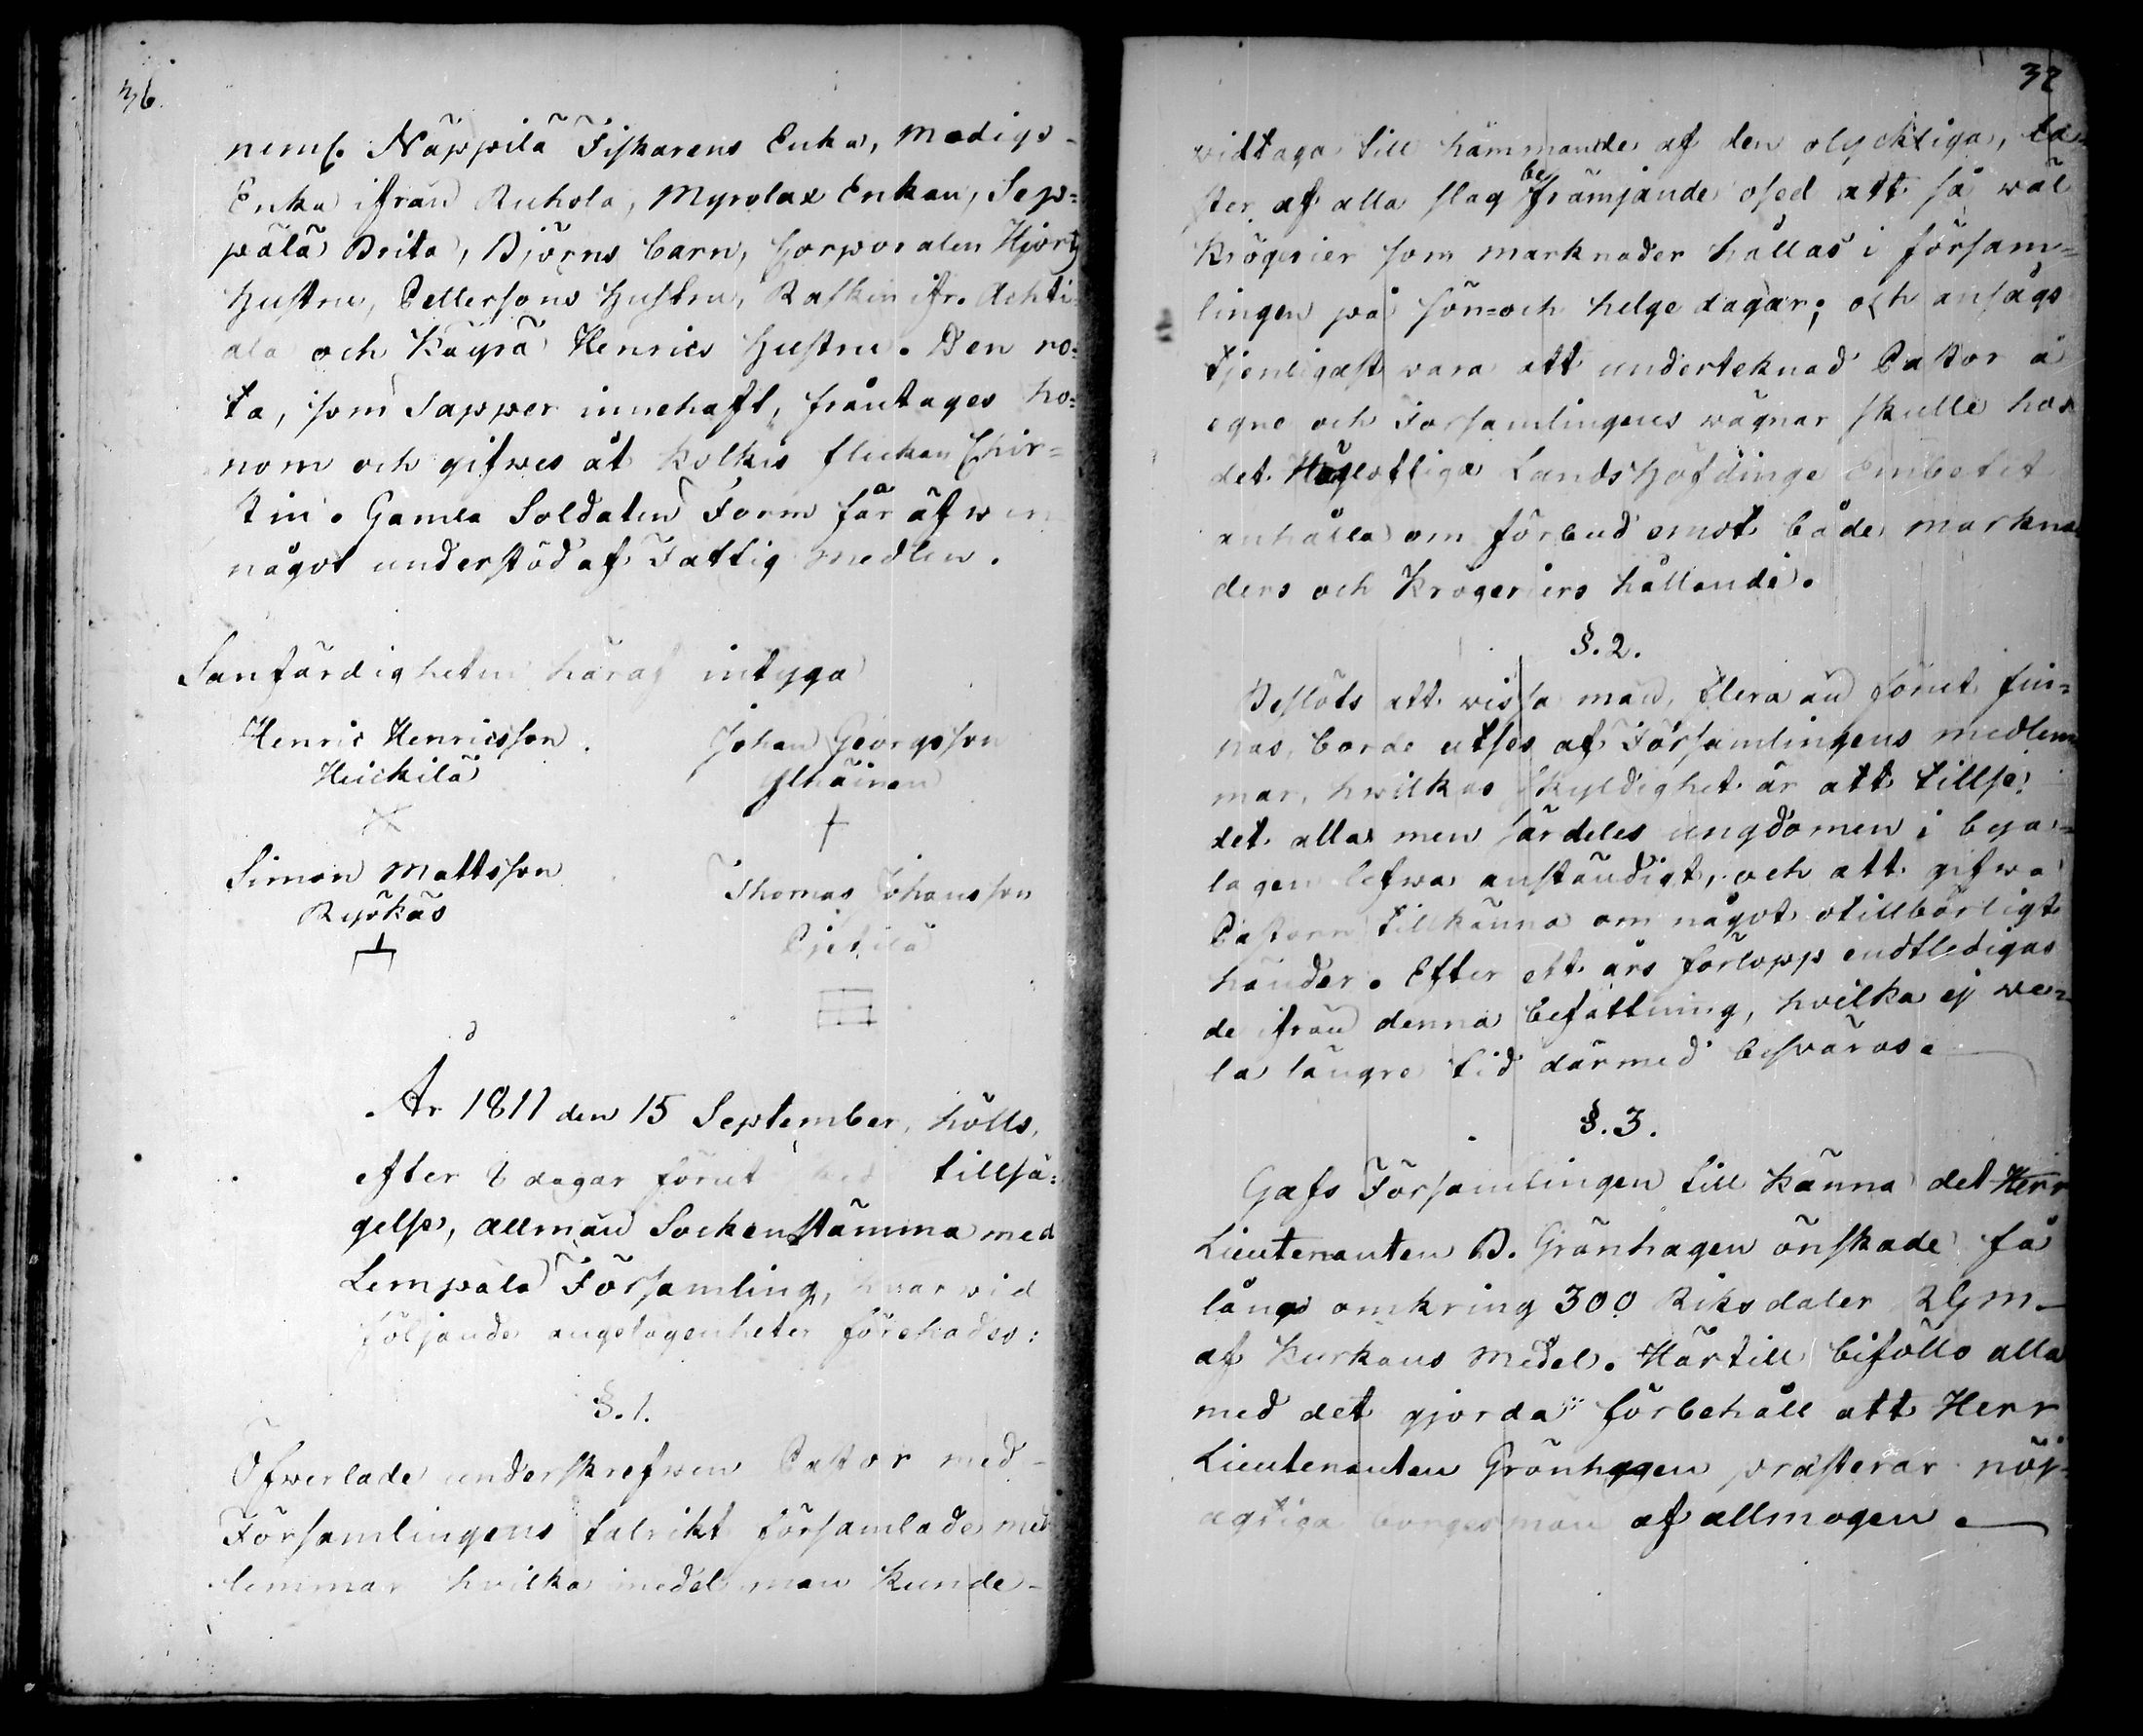 36.
neml. Näppilä Fiskarens Enka, Modigs-
Enka ifrån Ruhola, Myrolax Enkan, Sep-
pälä Brita, Björns barn, Corporalen Hjortz
Hustru, Pettersons Hustru, Raskin ifr. Achti-
ala och Käyrä Henrics Hustru. Den ro-
ta, som Sapper innehaft, fråntages ho-
nom och gifwes åt Kolkis flickan Chir-
stin. Gamla Soldaten Form får äfwen
något understöd af Fattig medlen.
Sanfärdigheten häraf intyga
Henric Henricsson. Johan Georgsson
Heickilä Ylhäinen
Simon Mattsson Thomas Johansson
Ryökäs Pietilä
År 1811 den 15 September, hölls,
efter 8 dagar förut tillsä-
gelse, allmän Sockenstämma med
Lempälä Församling, hvarvid
följande angelägenheter förehades:
§. 1.
Öfwerlade underskrefwen Pastor med-
Församlingens talrikt församlade med-
lemmar hvilka medel man kunde-
37
vidtaga till hämmande af den olyckliga, la-
ster af alla slag befrämjande osed att så wäl
Krögerier som marknader hållas i församl-
lingen på sön- och helge dagar; och ansågs
tjenligast vara att underteknad Pastor å
egne och Församlingens wägnar skulle hos
det Höglofliga Landshöfdinge Embetet
anhålla om förbud emot både markna-
ders och Krögeriers hållande.
§. 2.
Beslöts att vissa män, flera än förut fin-
nas, borde utses af Församlingens medlem-
mar, hwilkas skyldighet är att tillse
det alla men särdeles ungdomen i bya-
lagen lefwa anständigt, och att gifwa
Pastorn tillkänna om något otillbörligt
händer. Efter ett års förlopp endtledigas
de ifrån denna befattning, hvilka ej we-
la längre tid därmed besväras.
§. 3.
Gafs Församlingen till känna det Herr
Lieutenanten B. Grönhagen önskade få
låna omkring 300 Riksdaler RGm-
af Kyrkans medel. Härtill biföllo alla
med det gjorda förbehåll att Herr
Lieutenanten Grönhagen præsterar nöj-
agtiga borgesmän af allmogen.